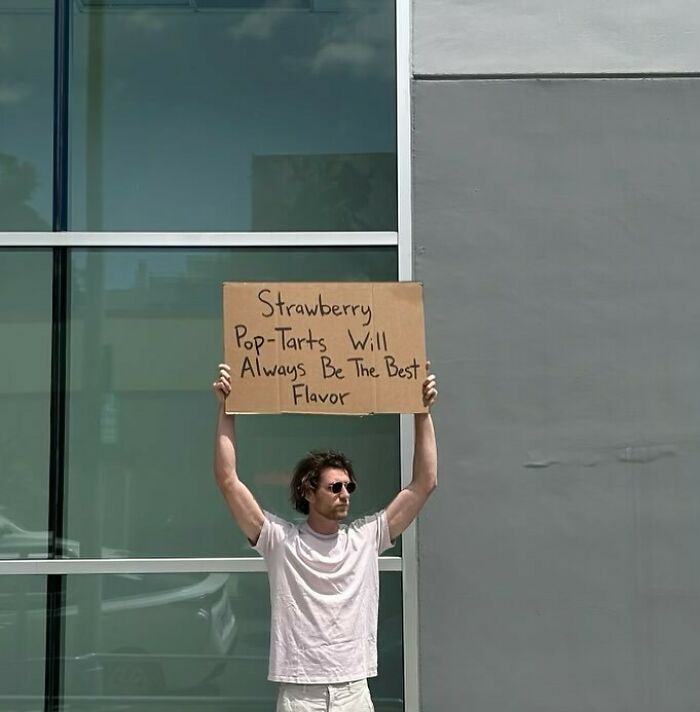 Strawberry
Pop-Tarts Will
Always Be The Best
Flavor